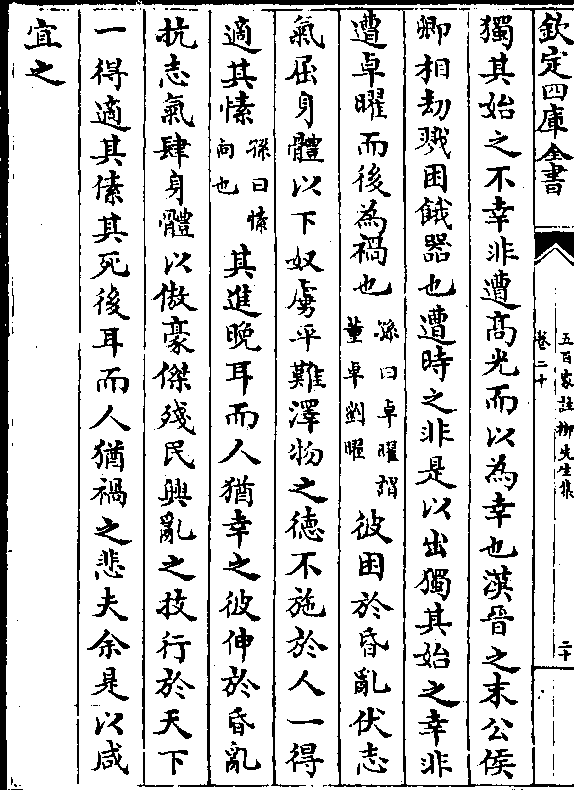 欽定四庫全書
五百家註柳先生集
卷二十
二十
獨其始之不幸非遭髙光而以為幸也漢晉之末公侯
卿相刼戮困餓器也遭時之非是以出獨其始之幸非
遭卓曜而後為禍也孫曰卓曜謂董卓劉曜彼困於昏亂伏志
氣屈身體以下奴虜平難澤物之德不施於人一得
適其傃孫曰傃向也其進晚耳而人猶幸之彼伸於昏亂
抗志氣肆身體以傲豪傑殘民興亂之技行於天下
一得適其傃其死後耳而人猶禍之悲夫余是以咸
宜之